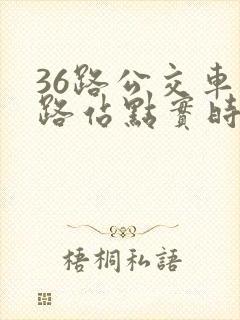 36路公交車
路佔點實時
梧桐私語